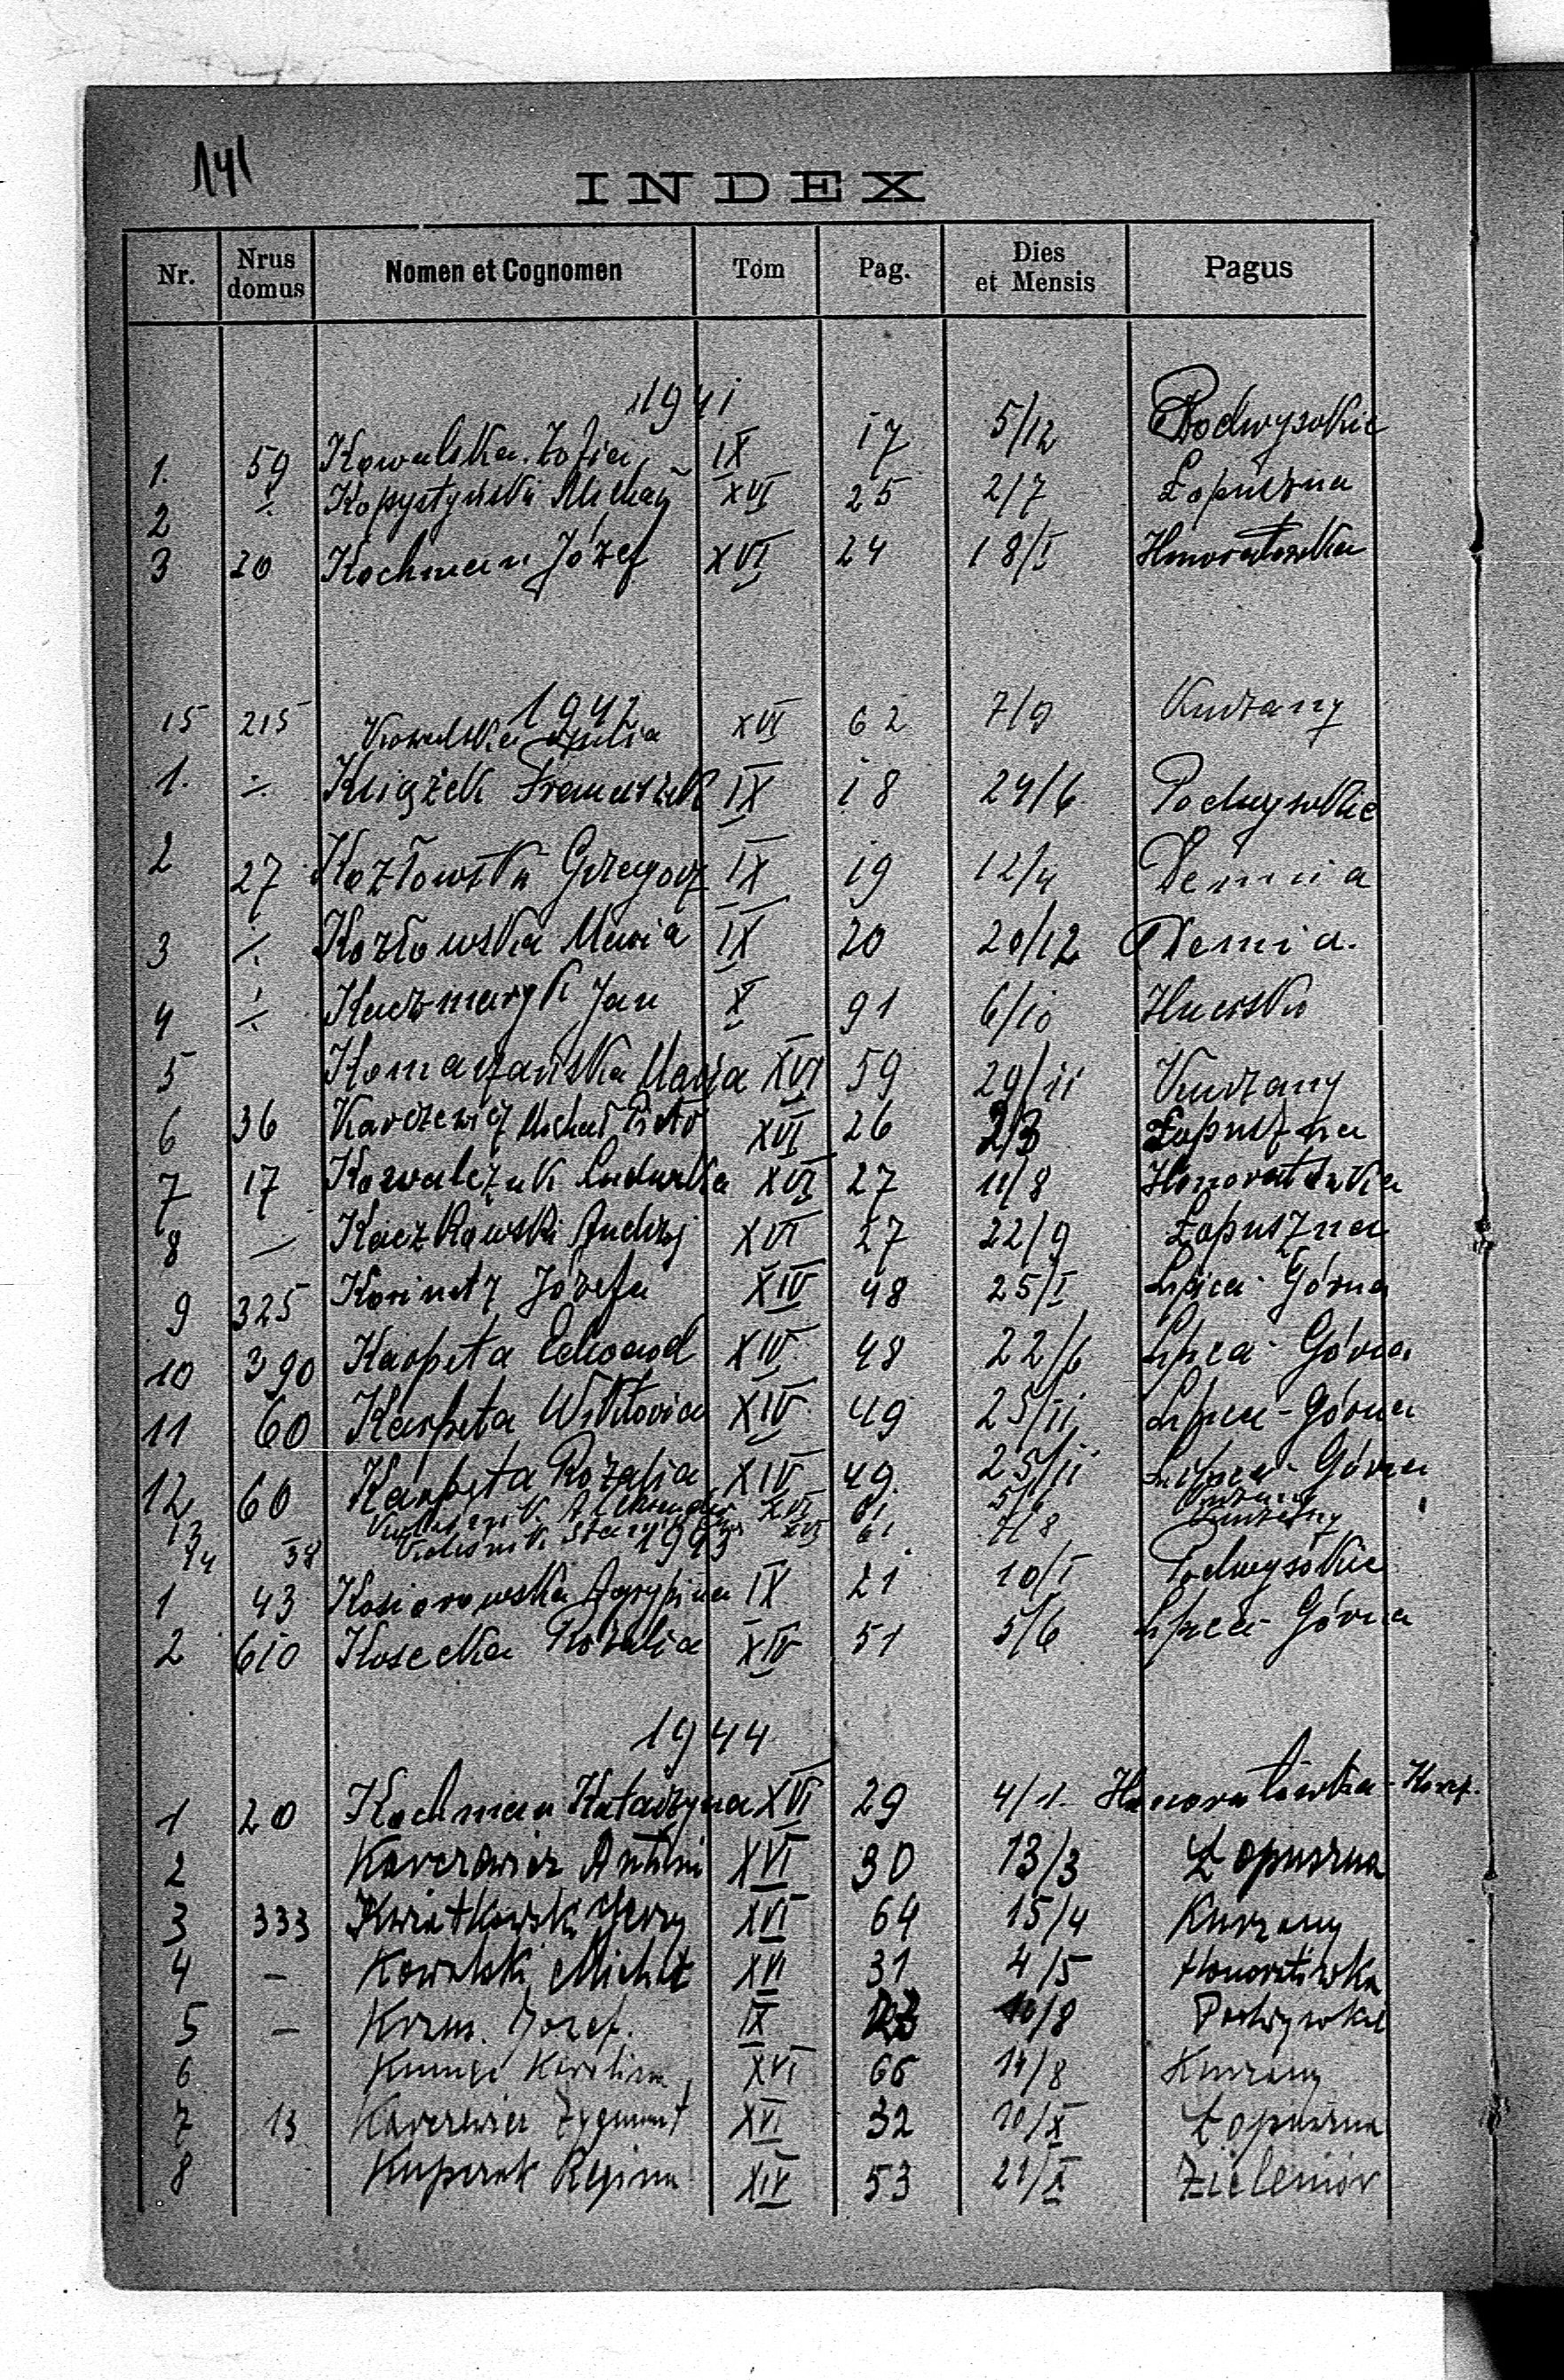 141
INDEX
Nr. Nrus domus Nomen et Cognomen Tom Pag. Dies et Mensis Pagus
1941
1. 59 Kowalska Zofia IX 17 5/12 Podwysokie
2 ÷ Kopystyński Michał XVI 25 2/7 Łopuszna
3 20 Kochman Józef XVI 24 18/I Honoratówka
1942
15 215 Kowalska Julia XVI 62 7/9 Kurzany
1. ÷ Książek Franciszek IX 18 24/6 Podwysokie
2 27 Kozłowski Grzegorz IX 19 12/4 Demnia
3 ÷ Kozłowska Maria IX 20 20/12 Demnia.
4 ÷ Kaczmaryk Jan X 91 6/10 Hucisko
5 Komarzańska Maria XVI 59 29/11 Kurzany
6 36 Karczewicz Michał Piotr XVI 26 2/3 Łopuszna
7 17 Kowalczuk Ludwika XVI 27 11/8 Honoratówka
8 — Kaczkowski Andrzej XVI 27 22/9 Łopuszna
9 325 Korinetz Józefa XIV 48 25/I Lipica-Górna
10 390 Karpeta Edward XIV 48 22/6 Lipica-Górna
11 60 Karpeta Wiktoria XIV 49 25/11 Lipica-Górna
12 60 Karpeta Rozalia XIV 49 25/11 Lipica-Górna
13 Aleksander XVI 61 5/6 Kurzany
14 38 XVI 61 7/8 Kurzany
1943
1 43 Kosiorowska Agrypina IX 21 10/I Podwysokie
2 610 Kosecka Rozalia XIV 51 5/6 Lipica Górna
1944
1 20 Kochman Katarzyna XVI 29 4/1. Honoratówka-
2 Karczewicz Antoni XVI 30 13/3 Łopuszna
3 333 Kwiatkowski Jerzy XVI 64 15/4 Kurzany
4 — Kowalski Michał XVI 31 4/5 Honoratówka
5 — Józef. IX 10/8 Podwysokie
6 Karolina XVI 66 14/8 Kurzany
7 13 Karczewicz Zygmunt XVI 32 10/X Łopuszna
8 Kuperak Regina XIV 53 21/X Zielenior